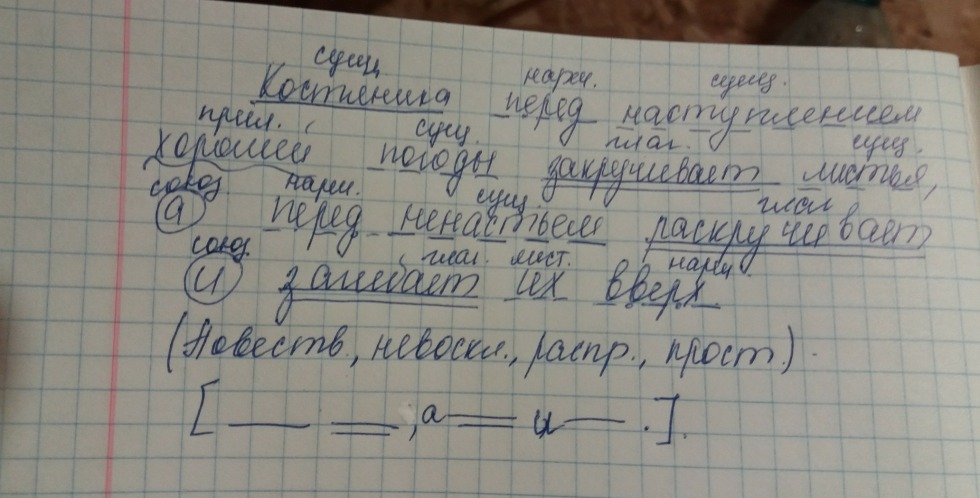 сущ. нареч. сущ.
Костяника перед наступлением
прил. сущ. глаг. сущ.
хорошей погоды закручивает листья,
союз. нареч. сущ. глаг.
а перед ненастьем раскручивает
союз. глаг. мест. нареч.
и загибает их вверх
(Повеств., невоскл., распр., прост.).
[ , а и . ].